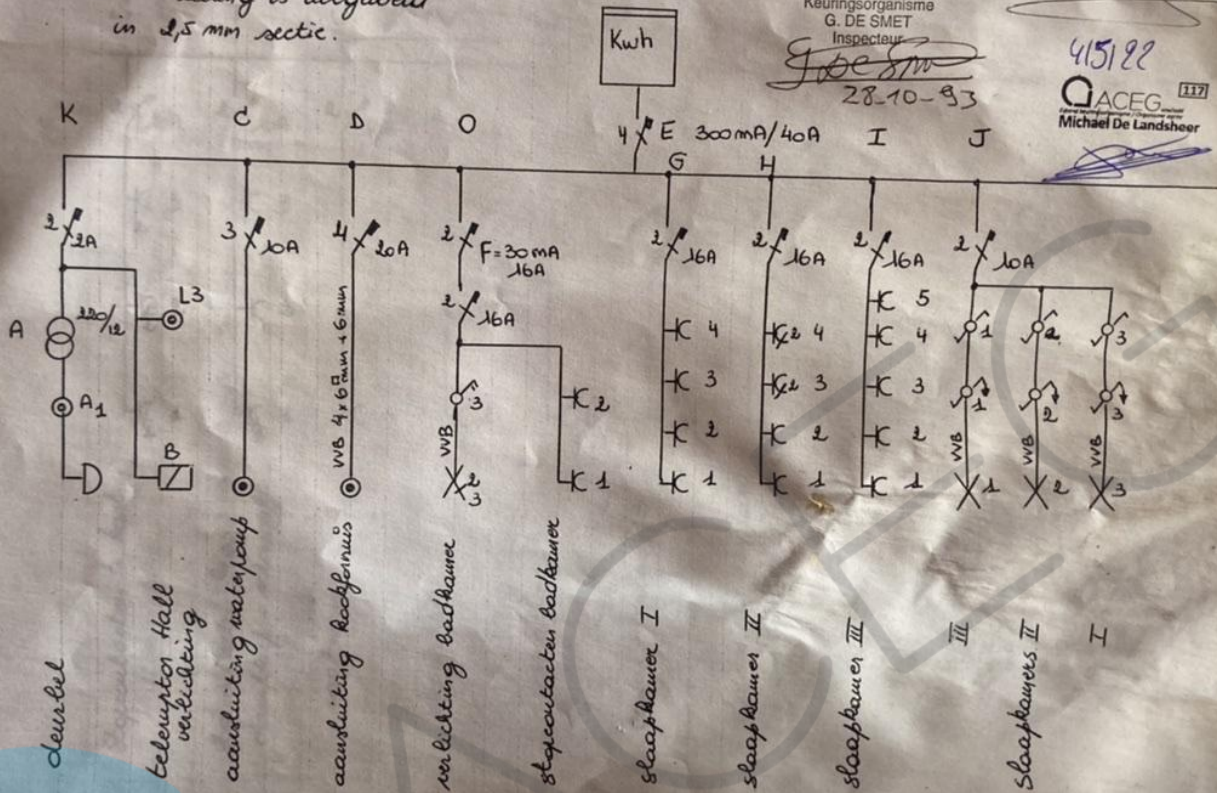 in 2,5 mm sectie.
Kwh
Keuringsorganisme
G. DE SMET
Inspecteur
28-10-93
4/5/22
ACEG
117
Michael De Landsheer
K C D O 4 E 300mA/40A I J
G H
2 2A
3 10A
4 20A
2 F=30mA
16A
2 16A
2 16A
2 16A
2 16A
2 10A
A 220/12
L3
A1
B
VVB 4x6mm+6mm
3
VVB
2
3
2
1
4
3
2
1
2 4
2 3
2
1
5
4
3
2
1
1 2 3
1 2 3
VVB VVB VVB
1 2 3
deurbel
teleruptor Hall
verlichting
aansluiting waterpomp
aansluiting kookfornuis
verlichting badkamer
stopcontacten badkamer
slaapkamer I
slaapkamer II
slaapkamer III
III
slaapkamers II
I